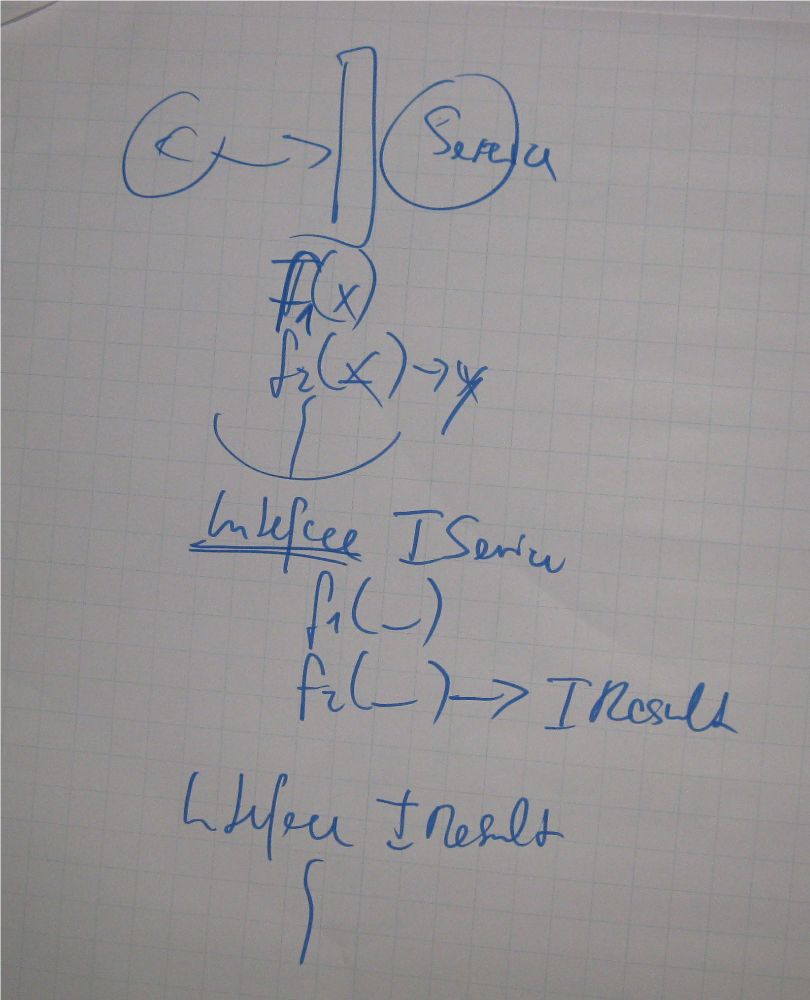 C → Service
f1(x)
f2(x) → y
Interface IService
f1(_)
f2(_) → IResult
Interface IResult